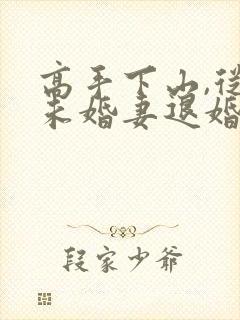 高手下山,從
未婚妻退婚
段家少爺